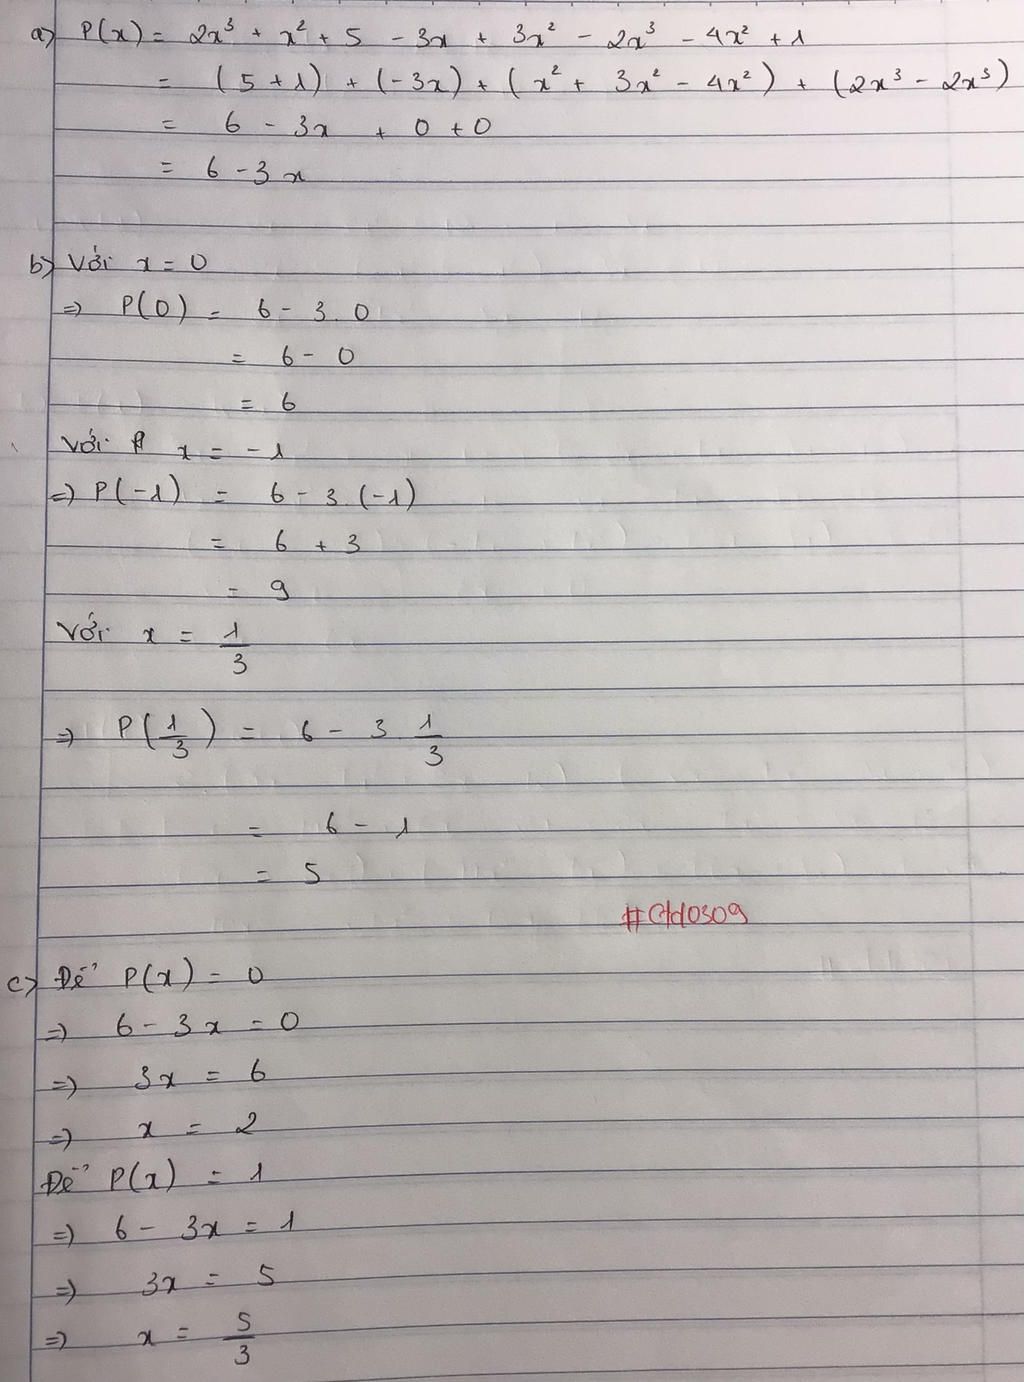 a) P(x) = 2x³ + x² + 5 - 3x + 3x² - 2x³ - 4x² + 1
= (5 + 1) + (-3x) + (x² + 3x² - 4x²) + (2x³ - 2x³)
= 6 - 3x + 0 + 0
= 6 - 3x
b) Với x = 0
=> P(0) = 6 - 3.0
= 6 - 0
= 6
Với x = -1
=> P(-1) = 6 - 3.(-1)
= 6 + 3
= 9
Với x = 1/3
=> P(1/3) = 6 - 3.1/3
= 6 - 1
= 5
c) Để P(x) = 0
=> 6 - 3x = 0
=> 3x = 6
=> x = 2
Để P(x) = 1
=> 6 - 3x = 1
=> 3x = 5
=> x = 5/3